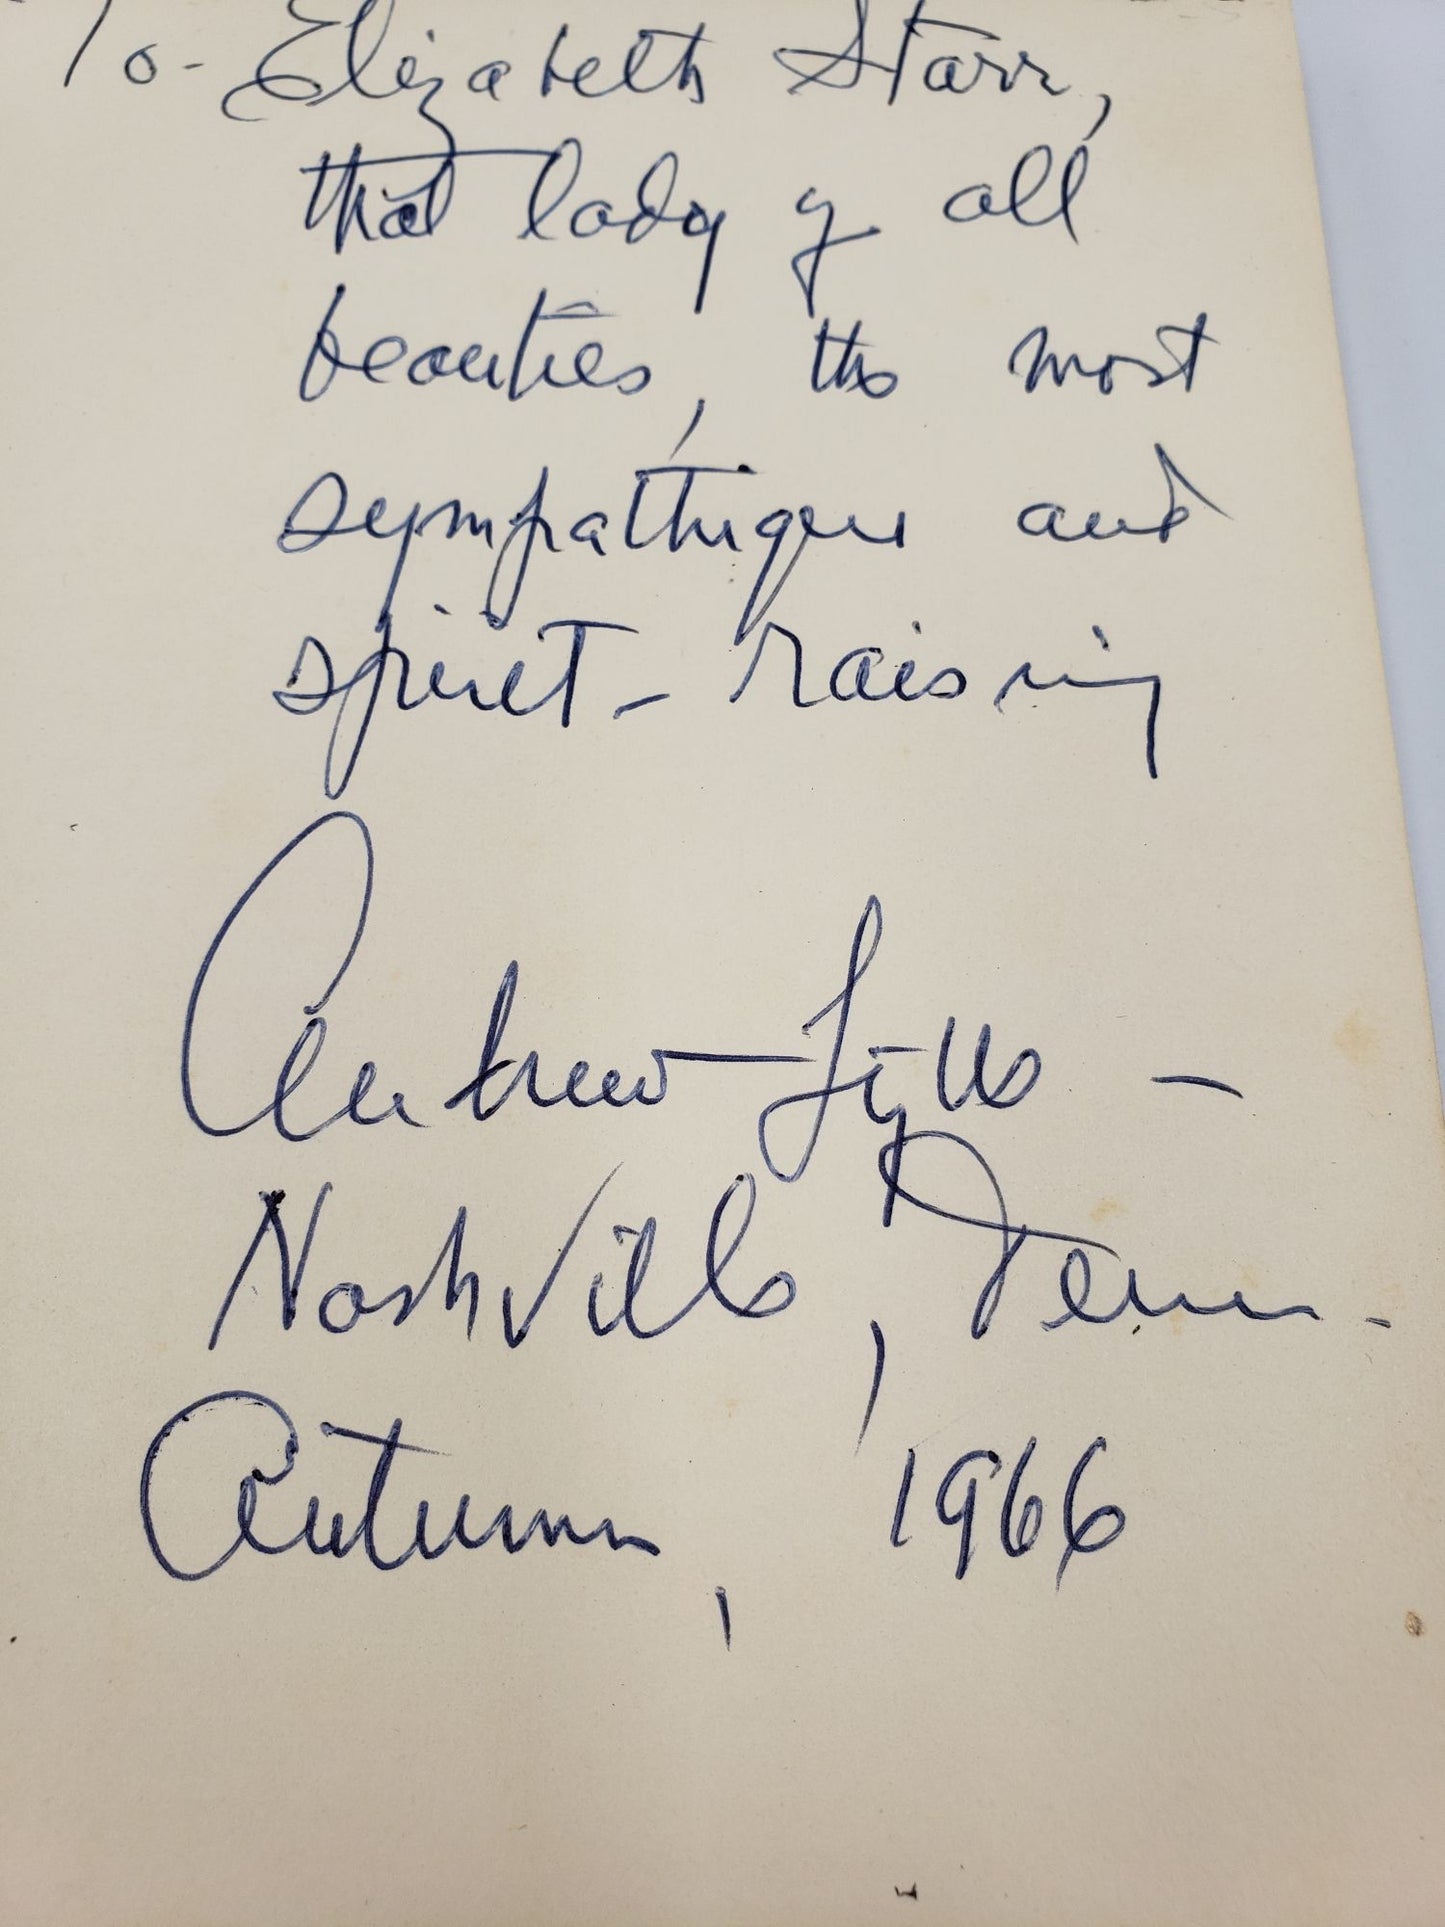 To - Elizabeth Starr,
that lady of all
beauties, the most
sympathique and
spirit-raising
Andrew Lytle -
Nashville, Tenn.
Autumn, 1966